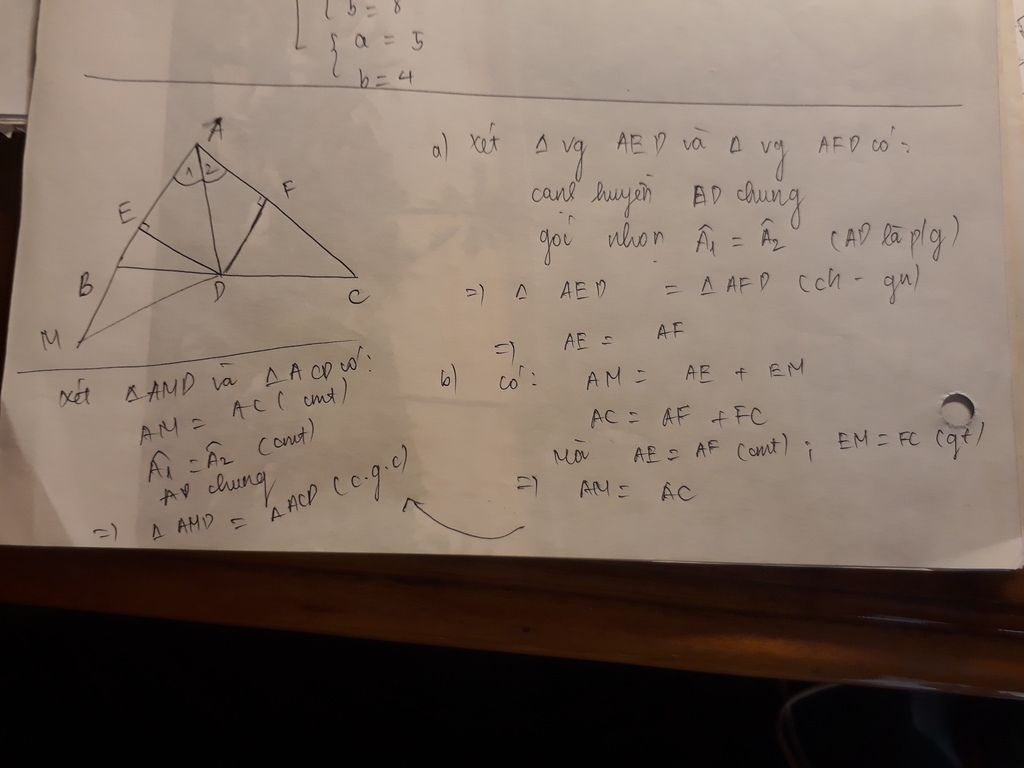 b = 8
a = 5
b = 4
A
1 2
E
F
B
D
C
M
a) Xét Δ vg AED và Δ vg AFD có:
cạnh huyền AD chung
góc nhọn Â1 = Â2 (AD là p/g)
=) Δ AED = Δ AFD (ch - gn)
=) AE = AF
b) có: AM = AE + EM
AC = AF + FC
Mà AE = AF (cmt) ; EM = FC (gt)
=) AM = AC
Xét Δ AMD và Δ ACD có:
AM = AC (cmt)
Â1 = Â2 (cmt)
AD chung
=) Δ AMD = Δ ACD (c.g.c)